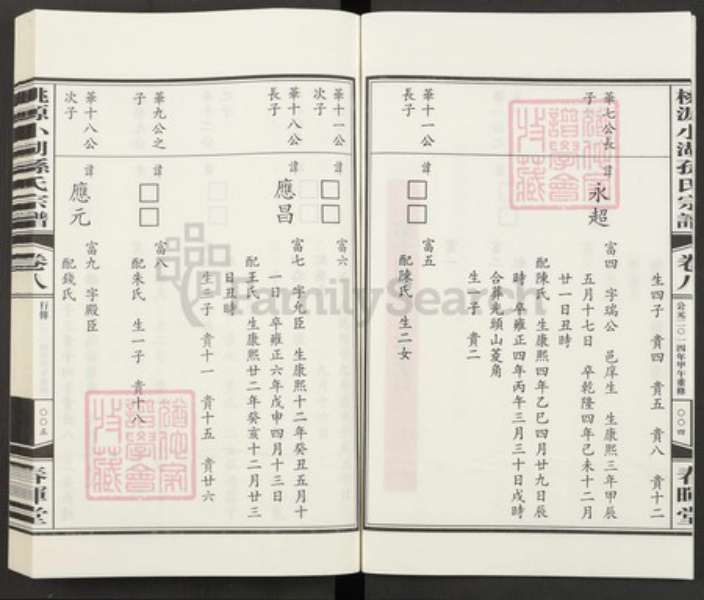 桃源小湖孫氏宗譜
卷八
公元二〇一四年甲午重修
〇〇四
春暉堂
生四子 貴四 貴五 貴八 貴十二
華七公長子
諱永超
富四 字瑞公 邑庠生 生康熙三年甲辰
五月十七日 卒乾隆四年己未十二月
廿一日丑時
配陳氏 生康熙四年乙巳四月廿九日辰
時 卒雍正四年丙午三月三十日戌時
合葬光頭山菱角
生一子 貴二
華十一公長子
諱□□
富五
配陳氏 生二女
華十一公次子
諱□□
富六
華十八公長子
諱應昌
富七 字允臣 生康熙十二年癸丑五月十
一日 卒雍正六年戊申四月十三日
配王氏 生康熙廿二年癸亥十二月廿三
日丑時
生三子 貴十一 貴十五 貴廿六
華九公之子
諱□□
富八
配朱氏 生一子 貴十八
華十八公次子
諱應元
富九 字殿臣
配錢氏
桃源小湖孫氏宗譜
卷八
行傳
〇〇五
春暉堂
猶他家譜學會收藏
猶他家譜學會收藏
FamilySearch